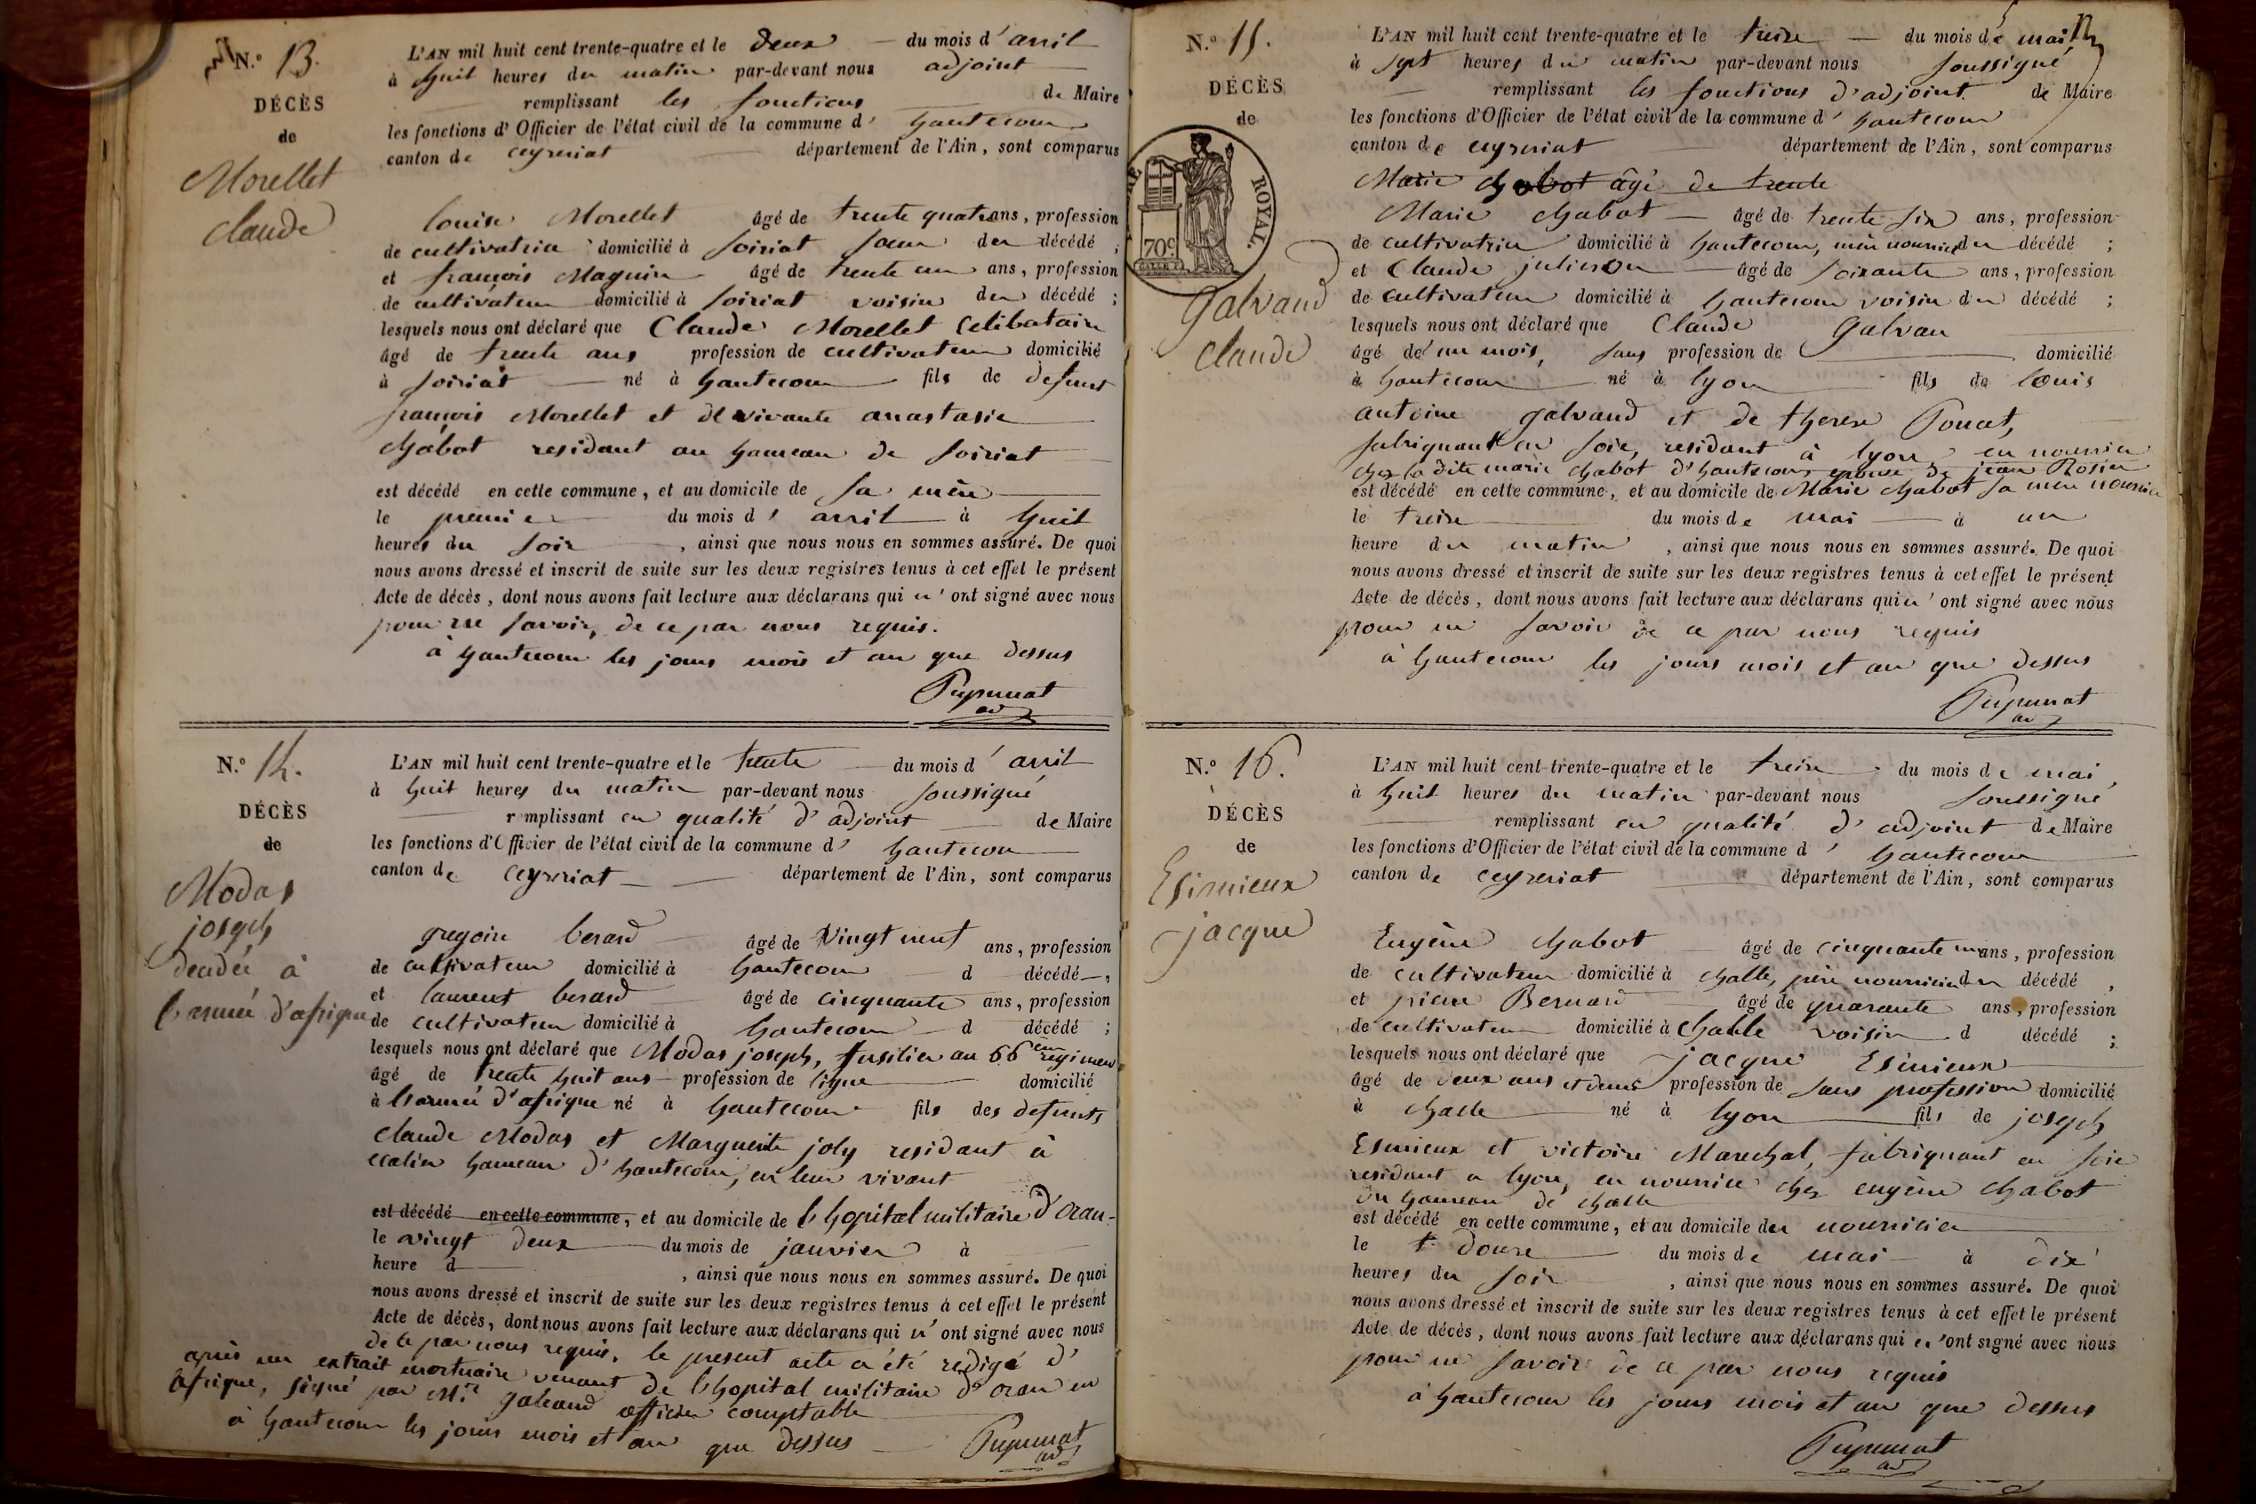 N.° 13.
DÉCÈS
de
Morellet
Claude
L'AN mil huit cent trente-quatre et le deux du mois d'avril
à huit heures du matin par-devant nous adjoint
remplissant les fonctions de Maire
les fonctions d'Officier de l'état civil de la commune d'hautecour
canton de ceyzeriat département de l'Ain, sont comparus
louise Morellet âgé de trente quatre ans, profession
de cultivatrice domicilié à soiriat soeur du décédé ;
et françois Maguin âgé de trente un ans, profession
de cultivateur domicilié à soiriat voisin du décédé ;
lesquels nous ont déclaré que Claude Morellet Célibataire
âgé de trente ans profession de cultivateur domicilié
à soiriat né à hautecour fils de defunt
françois Morellet et de vivante anastasie
chabot residant au hameau de soiriat
est décédé en cette commune, et au domicile de sa mère
le premier du mois d'avril à huit
heures du soir, ainsi que nous nous en sommes assuré. De quoi
nous avons dressé et inscrit de suite sur les deux registres tenus à cet effet le présent
Acte de décès, dont nous avons fait lecture aux déclarans qui n'ont signé avec nous
pour ne savoir, de ce par nous requis.
à hautecour les jours mois et an que dessus
Pupunat
adj
N.° 14.
DÉCÈS
de
Modas
joseph
decedé à
l'armée d'afrique
L'AN mil huit cent trente-quatre et le trente du mois d'avril
à huit heures du matin par-devant nous soussigné
remplissant en qualité d'adjoint de Maire
les fonctions d'Officier de l'état civil de la commune d'hautecour
canton de ceyzeriat département de l'Ain, sont comparus
gregoire berard âgé de vingt neuf ans, profession
de cultivateur domicilié à hautecour d décédé,
et laurent berard âgé de cinquante ans, profession
de cultivateur domicilié à hautecour d décédé ;
lesquels nous ont déclaré que Modas joseph, fusilier au 66eme regiment
âgé de trente huit ans profession de ligne domicilié
à l'armée d'afrique né à hautecour fils des defunts
claude Modas et Marguerite joly residant à
hameau d'hautecour, en leur vivant
est décédé en cette commune, et au domicile de l'hopital militaire d'oran
le vingt deux du mois de janvier à
heure d, ainsi que nous nous en sommes assuré. De quoi
nous avons dressé et inscrit de suite sur les deux registres tenus à cet effet le présent
Acte de décès, dont nous avons fait lecture aux déclarans qui n'ont signé avec nous
de ce par nous requis. le present acte a été redigé d'
après un extrait mortuaire venant de l'hopital militaire d'oran en
afrique, signé par Mr. galeand officier comptable
à hautecour les jours mois et an que dessus
Pupunat
adj
N.° 15.
DÉCÈS
de
ROYAL.
70c.
Galvand
Claude
L'AN mil huit cent trente-quatre et le treize du mois de mai
à sept heures du matin par-devant nous soussigné
remplissant les fonctions d'adjoint de Maire
les fonctions d'Officier de l'état civil de la commune d'hautecour
canton de ceyzeriat département de l'Ain, sont comparus
Marie chabot âgé de trente
Marie chabot âgé de trente six ans, profession
de cultivatrice domicilié à hautecour, mère nourrice du décédé ;
et Claude julieron âgé de soixante ans, profession
de cultivateur domicilié à hautecour voisin du décédé ;
lesquels nous ont déclaré que Claude Galvan
âgé de un mois, sans profession de domicilié
à hautecour né à lyon fils de louis
antoine galvand et de therese Poncet,
fabriquant en soie, residant à lyon, en nourrice
chez la dite marie chabot d'hautecour, epouse de jean Rosier
est décédé en cette commune, et au domicile de Marie chabot sa mère nourrice
le treize du mois de mai à un
heure du matin, ainsi que nous nous en sommes assuré. De quoi
nous avons dressé et inscrit de suite sur les deux registres tenus à cet effet le présent
Acte de décès, dont nous avons fait lecture aux déclarans qui n'ont signé avec nous
pour ne savoir de ce par nous requis
à hautecour les jours mois et an que dessus
Pupunat
adj
N.° 16.
DÉCÈS
de
Esimieux
jacque
L'AN mil huit cent trente-quatre et le treize du mois de mai,
à huit heures du matin par-devant nous soussigné
remplissant en qualité d'adjoint de Maire
les fonctions d'Officier de l'état civil de la commune d'hautecour
canton de ceyzeriat département de l'Ain, sont comparus
Eugène chabot âgé de cinquante un ans, profession
de cultivateur domicilié à challe, père nourricier du décédé,
et pierre Bernard âgé de quarante ans, profession
de cultivateur domicilié à challe voisin d décédé ;
lesquels nous ont déclaré que jacque Esimieux
âgé de deux ans et demi profession de sans profession domicilié
à challe né à lyon fils de joseph
Esimieux et victoire Marechal, fabriquant en soie
residant a lyon, en nourrice chez eugène chabot
du hameau de challe
est décédé en cette commune, et au domicile du nourricier
le douze du mois de mai à dix
heures du soir, ainsi que nous nous en sommes assuré. De quoi
nous avons dressé et inscrit de suite sur les deux registres tenus à cet effet le présent
Acte de décès, dont nous avons fait lecture aux déclarans qui n'ont signé avec nous
pour ne savoir de ce par nous requis
à hautecour les jours mois et an que dessus
Pupunat
adj